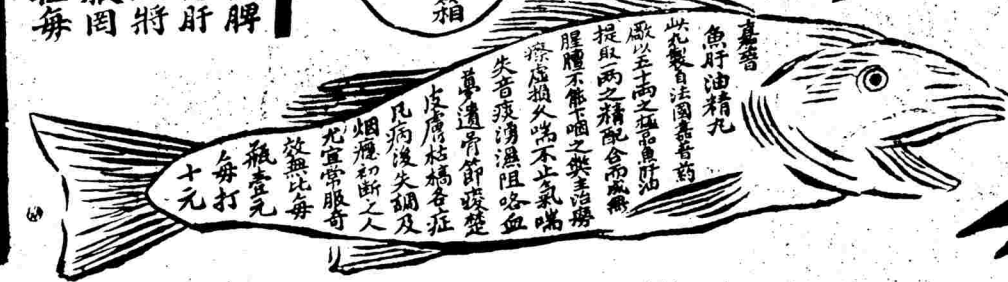 嘉普
魚肝油精丸
此丸製自法國嘉普藥
廠以五十兩之極品魚肝油
提取一兩之精配合而成無
腥膻不能下咽之弊主治癆
瘵虛損久喘不止氣喘
失音痰湧濕阻咯血
夢遺骨節痠楚
皮膚枯槁各症
凡病後失調及
烟癮初斷之人
尤宜常服奇
效無比每
瓶壹元
每打
十元
脾
肝
將
罔
每